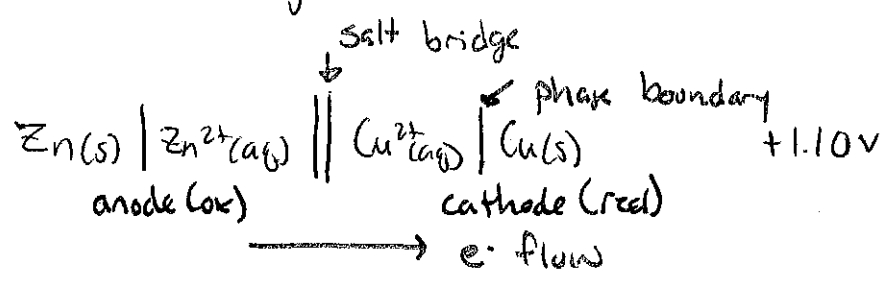 salt bridge
phase boundary
Zn(s) | Zn²⁺(aq) || Cu²⁺(aq) | Cu(s) +1.10V
anode (ox) cathode (red)
e⁻ flow